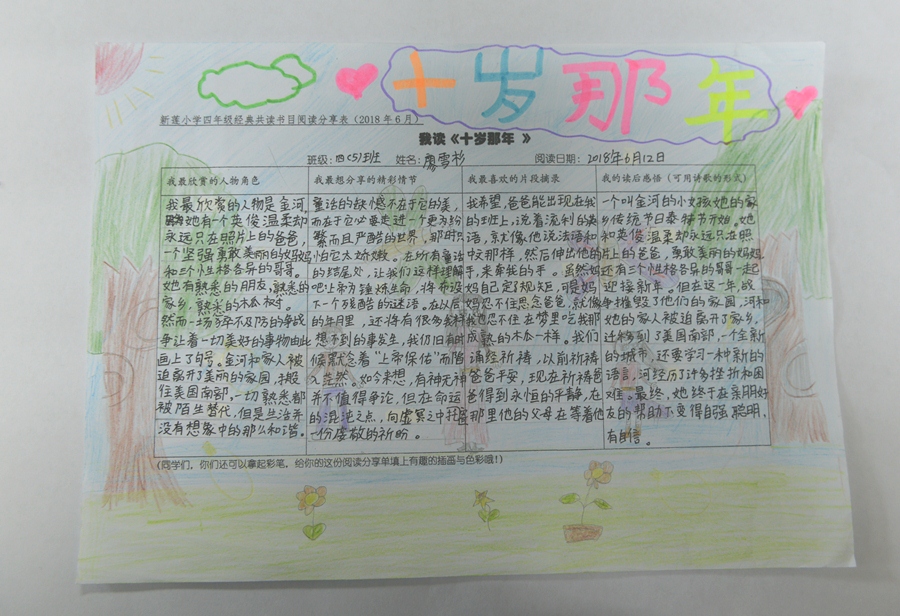 十岁那年
新莲小学四年级经典共读书目阅读分享表（2018年6月）
我读《十岁那年 》
班级：四(5)班 姓名：廖雪杉 阅读日期：2018年6月12日
我最欣赏的人物角色
我最欣赏的人物是金河
她有一个英俊温柔却
永远只在照片上的爸爸，
一个坚强勇敢美丽的妈妈
和三个性格各异的哥哥。
她有熟悉的朋友，熟悉的
家乡，熟悉的木瓜树。
然而一场猝不及防的争战
争让着一切美好的事物由此
画上了句号。金河和家人被
迫离开了美丽的家园，搬
往美国南部，一切熟悉都
被陌生替代，但是生活并
没有想象中的那么和谐。
我最想分享的精彩情节
童话的缺憾不在于它的美，
而在于它必要走进一个更为纷
繁而且严酷的世界，那时只
怕它太娇嫩。在所有童话
的结尾处，让我们这样理解
吧：上帝为锤炼生命，将布设
下一个残酷的谜语。在以后
的年月里，还将有很多我料
想不到的事发生，我仍旧有时
候默念着“上帝保佑”而陷
入茫然。如今来想，有神无神
并不值得争论，但在命运
的混沌之点，向虚冥之中寄
一份虔敬的祈盼。
我最喜欢的片段摘录
我希望，爸爸能出现在我
的班上，说着流利的英
语，就像他说法语和
中文那样，然后伸出他的
手，来牵我的手。虽然妈
妈自己定了规矩，可是妈
妈忍不住思念爸爸，就像
我也忍不住在梦里吃我那
成熟的木瓜一样。我们
诵经祈祷，以前祈祷
爸爸平安，现在祈祷爸
爸得到永恒的平静，在
那里他的父母在等着他
我的读后感悟（可用诗歌的形式）
一个叫金河的小女孩她的家
乡传统节日泰特节开始。她
和英俊温柔却永远只在照
片上的爸爸，勇敢美丽的妈妈
还有三个性格各异的哥哥一起
迎接新年。但在这一年，战
争摧毁了他们的家园，河和
她的家人被迫离开了家乡，
迁移到了美国南部，一个全新
的城市，还要学习一种新的
语言，河经历了许多挫折和困
难。最终，她终于在亲朋好
友的帮助下变得自强 聪明，
有自信。
（同学们，你们还可以拿起彩笔，给你的这份阅读分享单填上有趣的插画与色彩哦！）